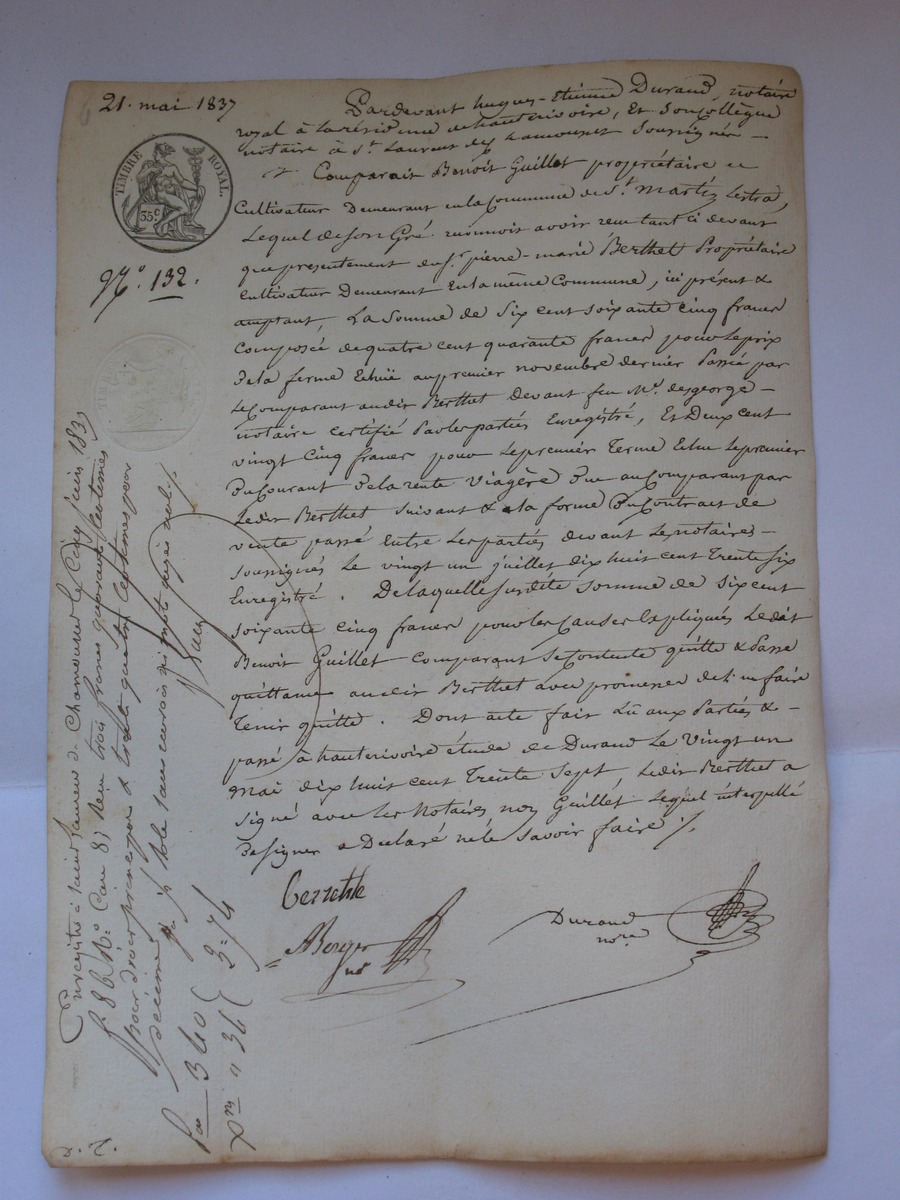 21. mai 1837
TIMBRE ROYAL.
35 c.
N.o 132.
Pardevant hugues-Etiènne Durand, notaire
royal à la résidence de hauterivoire, Et Son Collègue
notaire à St. Laurent de Chamousset Soussignés
Comparait Benoit Guillot propriétaire et
Cultivateur Demeurant en la Commune de St. Martin Lestra,
Lequel de Son Gré reconnoit avoir reçu tant ci devant
que présentement du Sr. pierre-marie Berthet Propriétaire
Cultivateur Demeurant En la même Commune, ici présent &
acceptant, La Somme de Six cent soixante Cinq francs
Composée de quatre cent quarante francs pour le prix
De la ferme Echuë au premier novembre dernier Passée par
Le Comparant audit Berthet Devant feu Me. desgeorge
notaire certifié Par les parties Enregistré, Et Deux cent
vingt Cinq francs pour Le premier Terme Echu Le premier
Du Courant De la rente Viagère Due au Comparant par
Ledit Berthet Suivant & à la forme Du Contract de
vente passé Entre Les parties devant Les notaires
Soussignés Le vingt un juillet dix huit cent Trente Six
Enregistré. De laquelle Susdite Somme de Six cent
Soixante Cinq francs pour les Causes Expliquées Ledit
Benoit Guillot Comparant Se Contente quitte & Passe
quittance audit Berthet avec promesse de l'en faire
Tenir quitte. Dont acte fait Lû aux Parties &
passé à hauterivoire étude de Durand Le Vingt un
mai dix huit cent Trente Sept, Ledit Berthet a
Signé avec Les Notaires non Guillot Lequel interpellé
De Signer a Déclaré ne le Savoir faire
Berger
Durand
nore
Enregistré à Saint Laurent de Chamousset le Cinq juin 1837
f.o 86 R.o Case 8, Reçu trois francs quarante centimes
pour droit principal & trente quatre centimes pour
décime
340
34
3=74